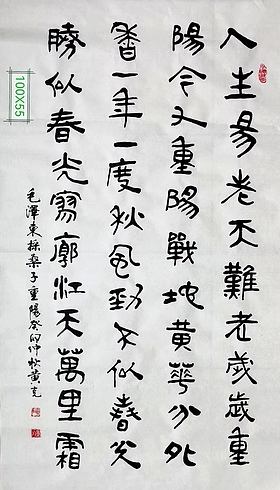 人生易老天難老歲歲重
陽今又重陽戰地黃華分外
香一年一度秋風勁不似春光
勝似春光寥廓江天萬里霜
毛澤東採桑子重陽癸卯仲秋黃克
100X55